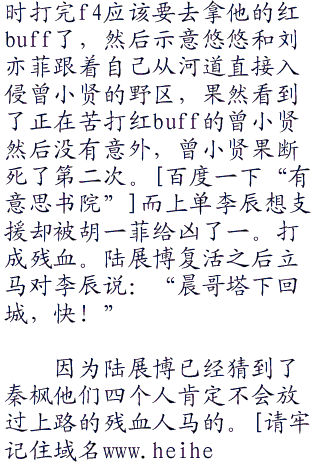 时打完f4应该要去拿他的红
buff了，然后示意悠悠和刘
亦菲跟着自己从河道直接入
侵曾小贤的野区，果然看到
了正在苦打红buff的曾小贤
然后没有意外，曾小贤果断
死了第二次。[百度一下“有
意思书院”]而上单李辰想支
援却被胡一菲给凶了一。打
成残血。陆展博复活之后立
马对李辰说：“晨哥塔下回
城，快！”
因为陆展博已经猜到了
秦枫他们四个人肯定不会放
过上路的残血人马的。[请牢
记住域名www.heihe